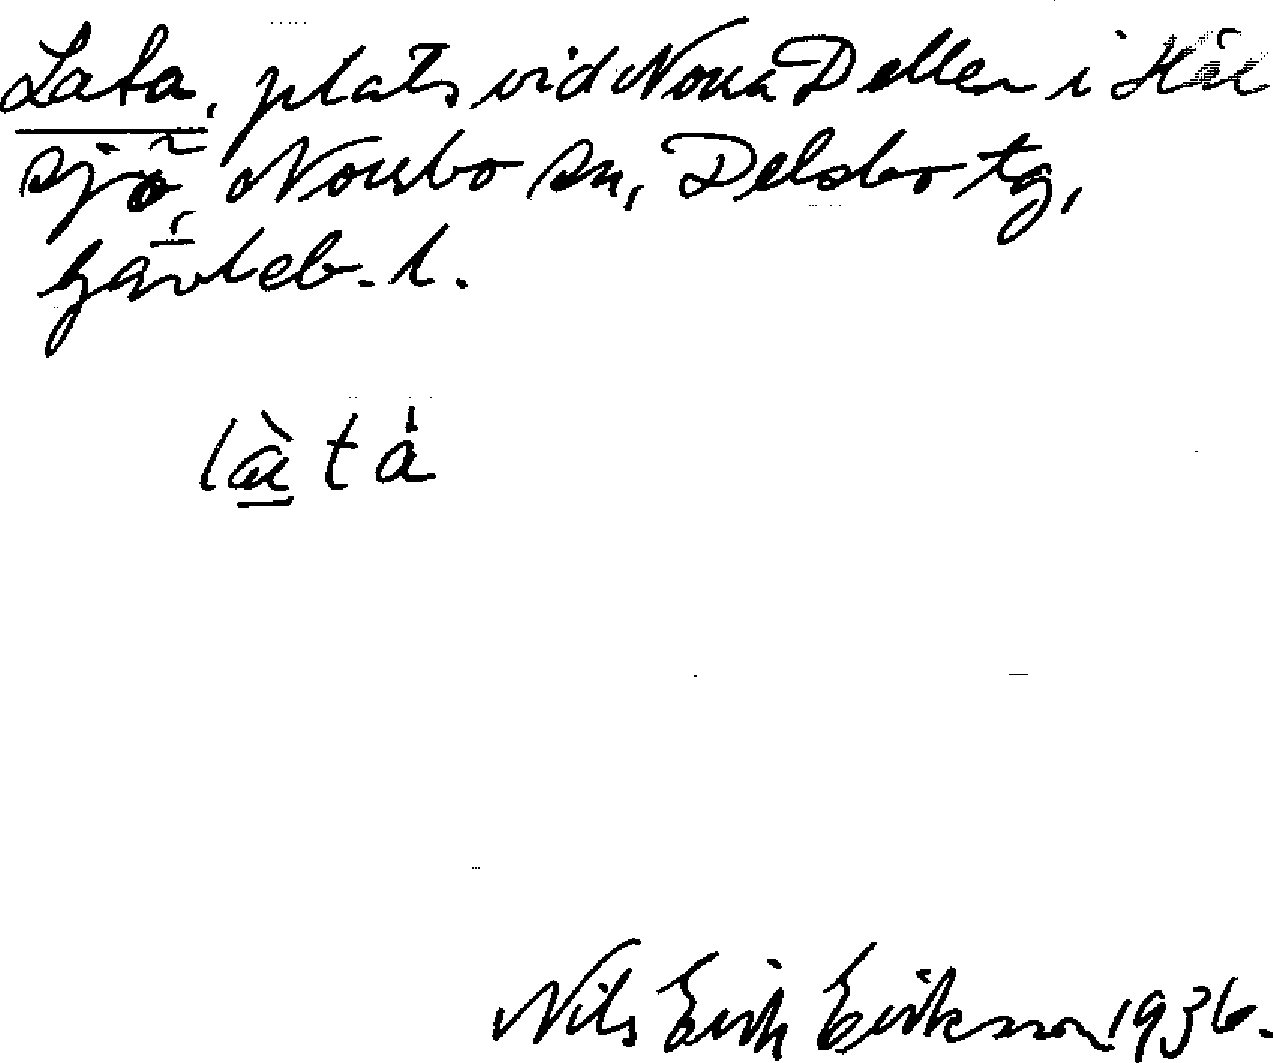 Lata, plats vid Norra Dellen i Häl
sjö, Norrbo sn, Delsbo tg,
Gävleb. l.
là̱tá
Nils Erik Eriksson 1936.